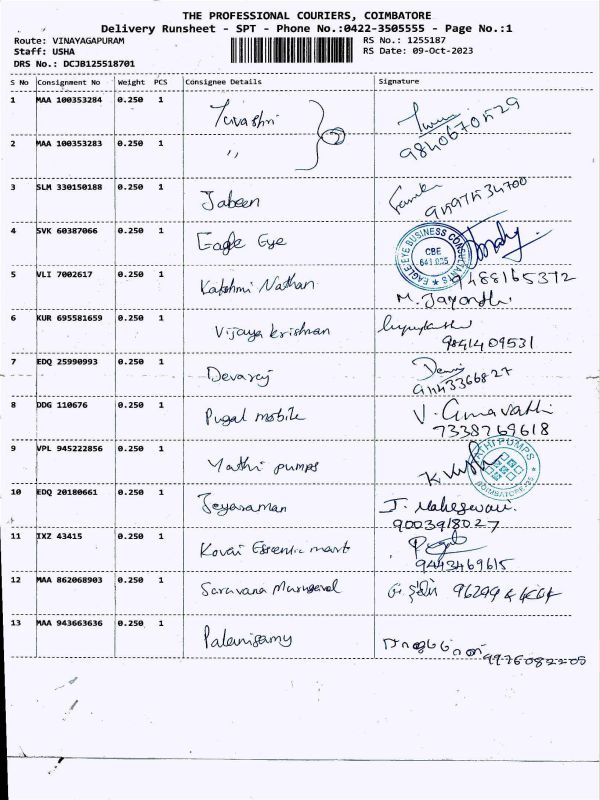 THE PROFESSIONAL COURIERS, COIMBATORE
Delivery Runsheet - SPT - Phone No.:0422-3505555 - Page No.:1
Route: VINAYAGAPURAM RS No.: 1255187
Staff: USHA RS Date: 09-Oct-2023
DRS No.: DCJB125518701
S No Consignment No Weight PCS Consignee Details Signature
1 MAA 100353284 0.250 1 Yuvashri
9840670529
2 MAA 100353283 0.250 1 ,,
3 SLM 330150188 0.250 1 Jabeen
4 SVK 60387066 0.250 1 Eagle Eye
EAGLE EYE BUSINESS CONSULTANTS
CBE
641 035
5 VLI 7002617 0.250 1 Nathan 9488165372
M. Jayanthi
6 KUR 695581659 0.250 1 Vijaya krishnan
9841409531
7 EDQ 25990993 0.250 1 Devaraj
9443366827
8 DDG 110676 0.250 1 Pugal mobile V. Amavathi
7338769618
9 VPL 945222856 0.250 1 Mathi pumps
PUMPS
COIMBATORE-35
10 EDQ 20180661 0.250 1 Jeyaraman J. Maheswari
9003918027
11 IXZ 43415 0.250 1 Kovai mart
9443469615
12 MAA 862068903 0.250 1 Saravana
13 MAA 943663636 0.250 1 Palanisamy
9976082205